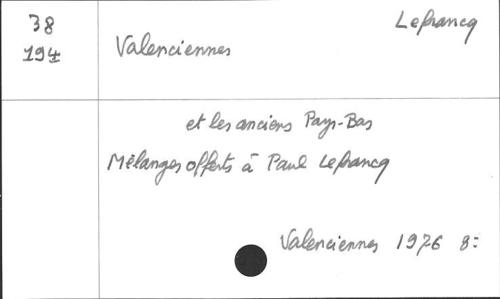 38
194
Lefrancq
Valenciennes
et les anciens Pays-Bas
Mélanges offerts à Paul Lefrancq
Valenciennes 1976 8: